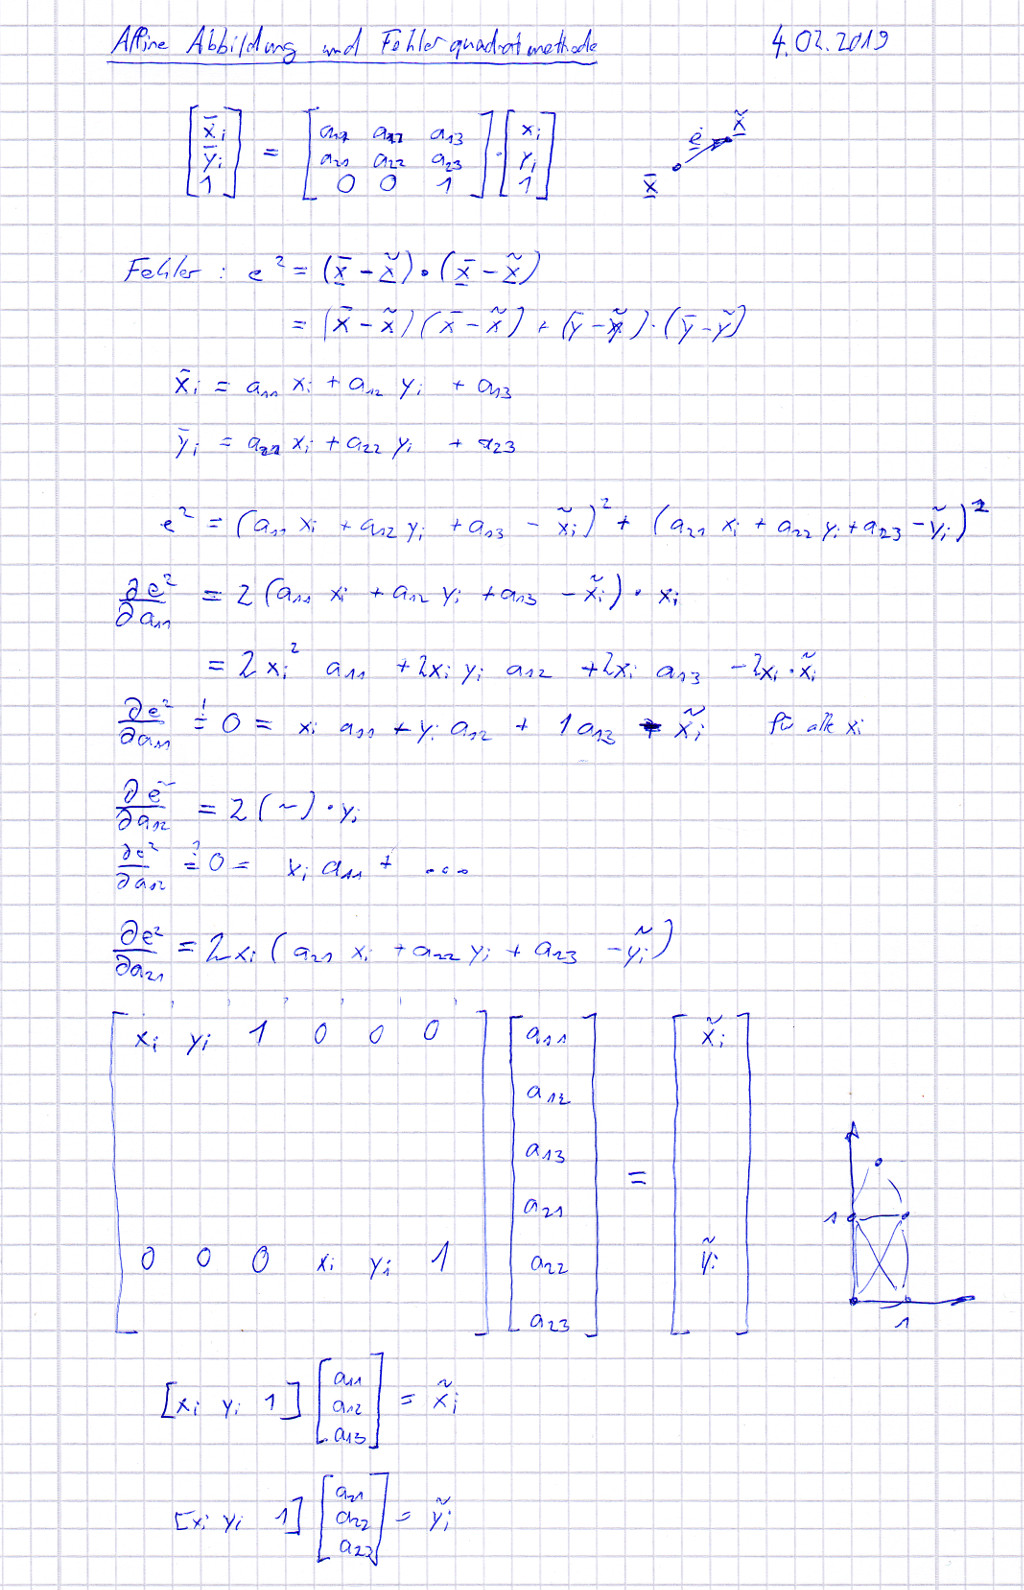 Affine Abbildung und Fehlerquadratmethode 4.02.2019
[x̄ᵢ ȳᵢ 1] = [a₁₁ a₁₂ a₁₃ a₂₁ a₂₂ a₂₃ 0 0 1] · [xᵢ yᵢ 1]
e x̃
x̄
Fehler: e² = (x̄ - x̃) • (x̄ - x̃)
= (x̄ - x̃)(x̄ - x̃) + (ȳ - ỹ)·(ȳ - ỹ)
x̄ᵢ = a₁₁ xᵢ + a₁₂ yᵢ + a₁₃
ȳᵢ = a₂₁ xᵢ + a₂₂ yᵢ + a₂₃
e² = (a₁₁ xᵢ + a₁₂ yᵢ + a₁₃ - x̃ᵢ)² + (a₂₁ xᵢ + a₂₂ yᵢ + a₂₃ - ỹᵢ)²
∂e²/∂a₁₁ = 2 (a₁₁ xᵢ + a₁₂ yᵢ + a₁₃ - x̃ᵢ) · xᵢ
= 2xᵢ² a₁₁ + 2xᵢ yᵢ a₁₂ + 2xᵢ a₁₃ - 2xᵢ · x̃ᵢ
∂e²/∂a₁₁ =! 0 = xᵢ a₁₁ + yᵢ a₁₂ + 1 a₁₃ - x̃ᵢ für alle xᵢ
∂e²/∂a₁₂ = 2 (~) · yᵢ
∂e²/∂a₁₂ =! 0 = xᵢ a₁₁ + ...
∂e²/∂a₂₁ = 2xᵢ (a₂₁ xᵢ + a₂₂ yᵢ + a₂₃ - ỹᵢ)
[xᵢ yᵢ 1 0 0 0] [a₁₁ = [x̃ᵢ
a₁₂
a₁₃
a₂₁
1
0 0 0 xᵢ yᵢ 1 a₂₂ ỹᵢ
a₂₃]
1
[xᵢ yᵢ 1] [a₁₁ a₁₂ a₁₃] = x̃ᵢ
[xᵢ yᵢ 1] [a₂₁ a₂₂ a₂₃] = ỹᵢ